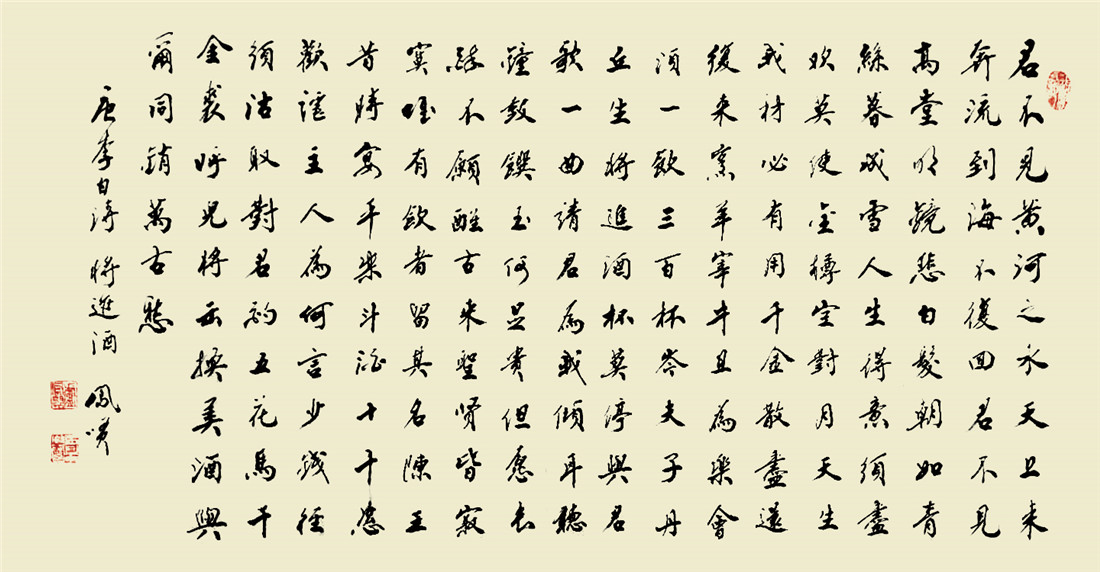 君不見黄河之水天上来
奔流到海不復回君不見
高堂明鏡悲白髮朝如青
絲暮成雪人生得意須盡
欢莫使金樽空對月天生
我材必有用千金散盡還
復来烹羊宰牛且為樂會
須一飲三百杯岑夫子丹
丘生將進酒杯莫停與君
歌一曲請君為我傾耳聽
鐘鼓饌玉何足貴但愿長
醉不願醒古来聖贤皆寂
寞唯有飲者留其名陳王
昔時宴平樂斗酒十千恣
歡謔主人為何言少錢徑
須沽取對君酌五花馬千
金裘呼兒將出換美酒與
爾同銷萬古愁
唐李白詩將進酒 鳳